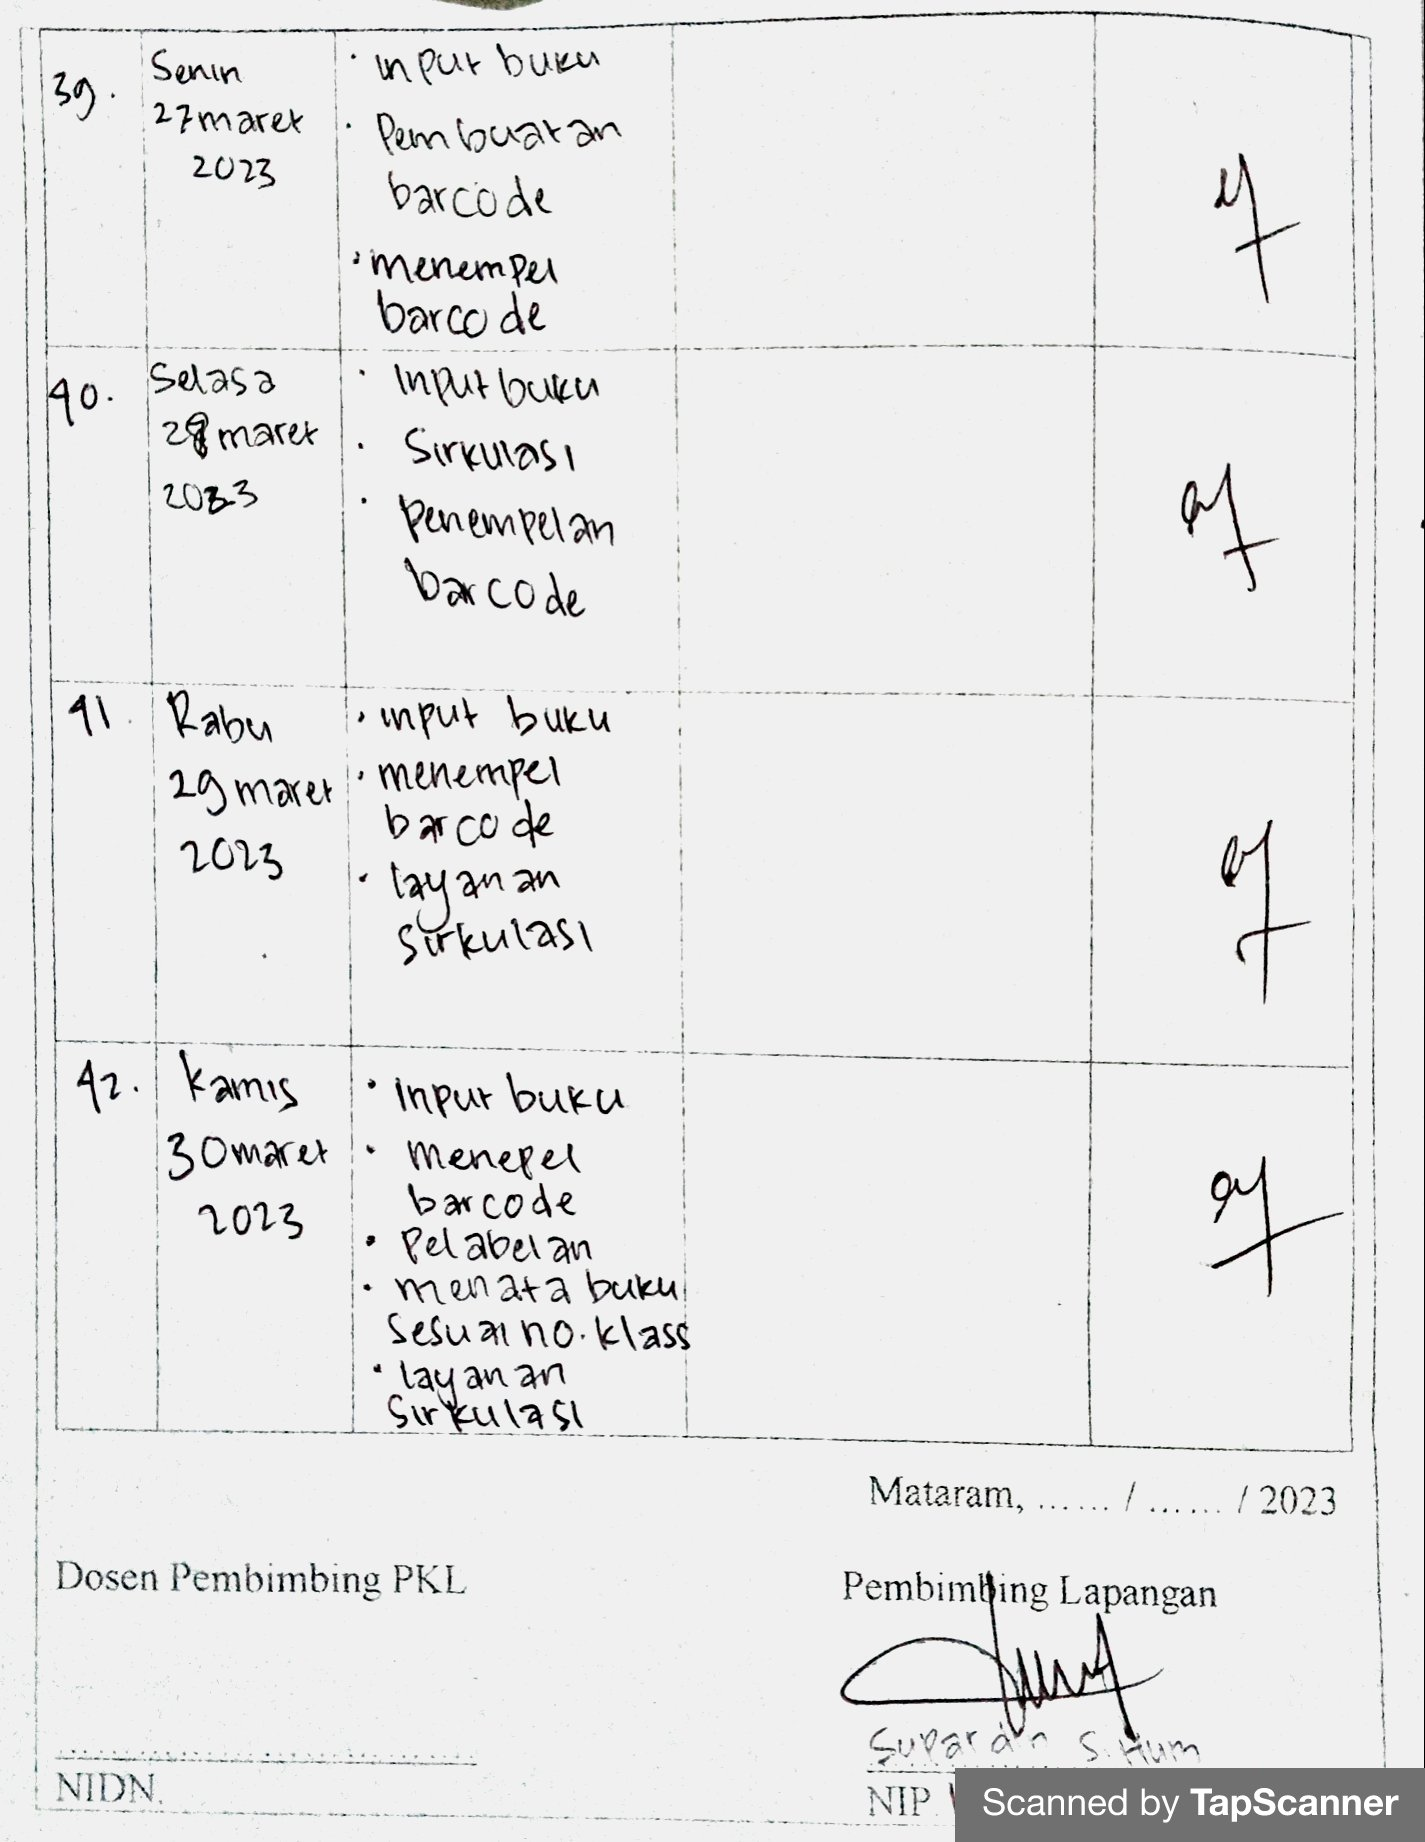 39.
Senin
27 maret
2023
· input buku
· Pembuatan
barcode
· menempel
barcode
40.
Selasa
28 maret
2023
· Input buku
· Sirkulasi
· Penempelan
barcode
41.
Rabu
29 maret
2023
· input buku
· menempel
barcode
· layanan
sirkulasi
42.
Kamis
30 maret
2023
· Input buku
· Menepel
barcode
· Pelabelan
· menata buku
sesuai no. klass
· layanan
sirkulasi
Mataram, ...... / ...... / 2023
Dosen Pembimbing PKL
Pembimbing Lapangan
S. Hum
NIDN.
NIP.
Scanned by TapScanner